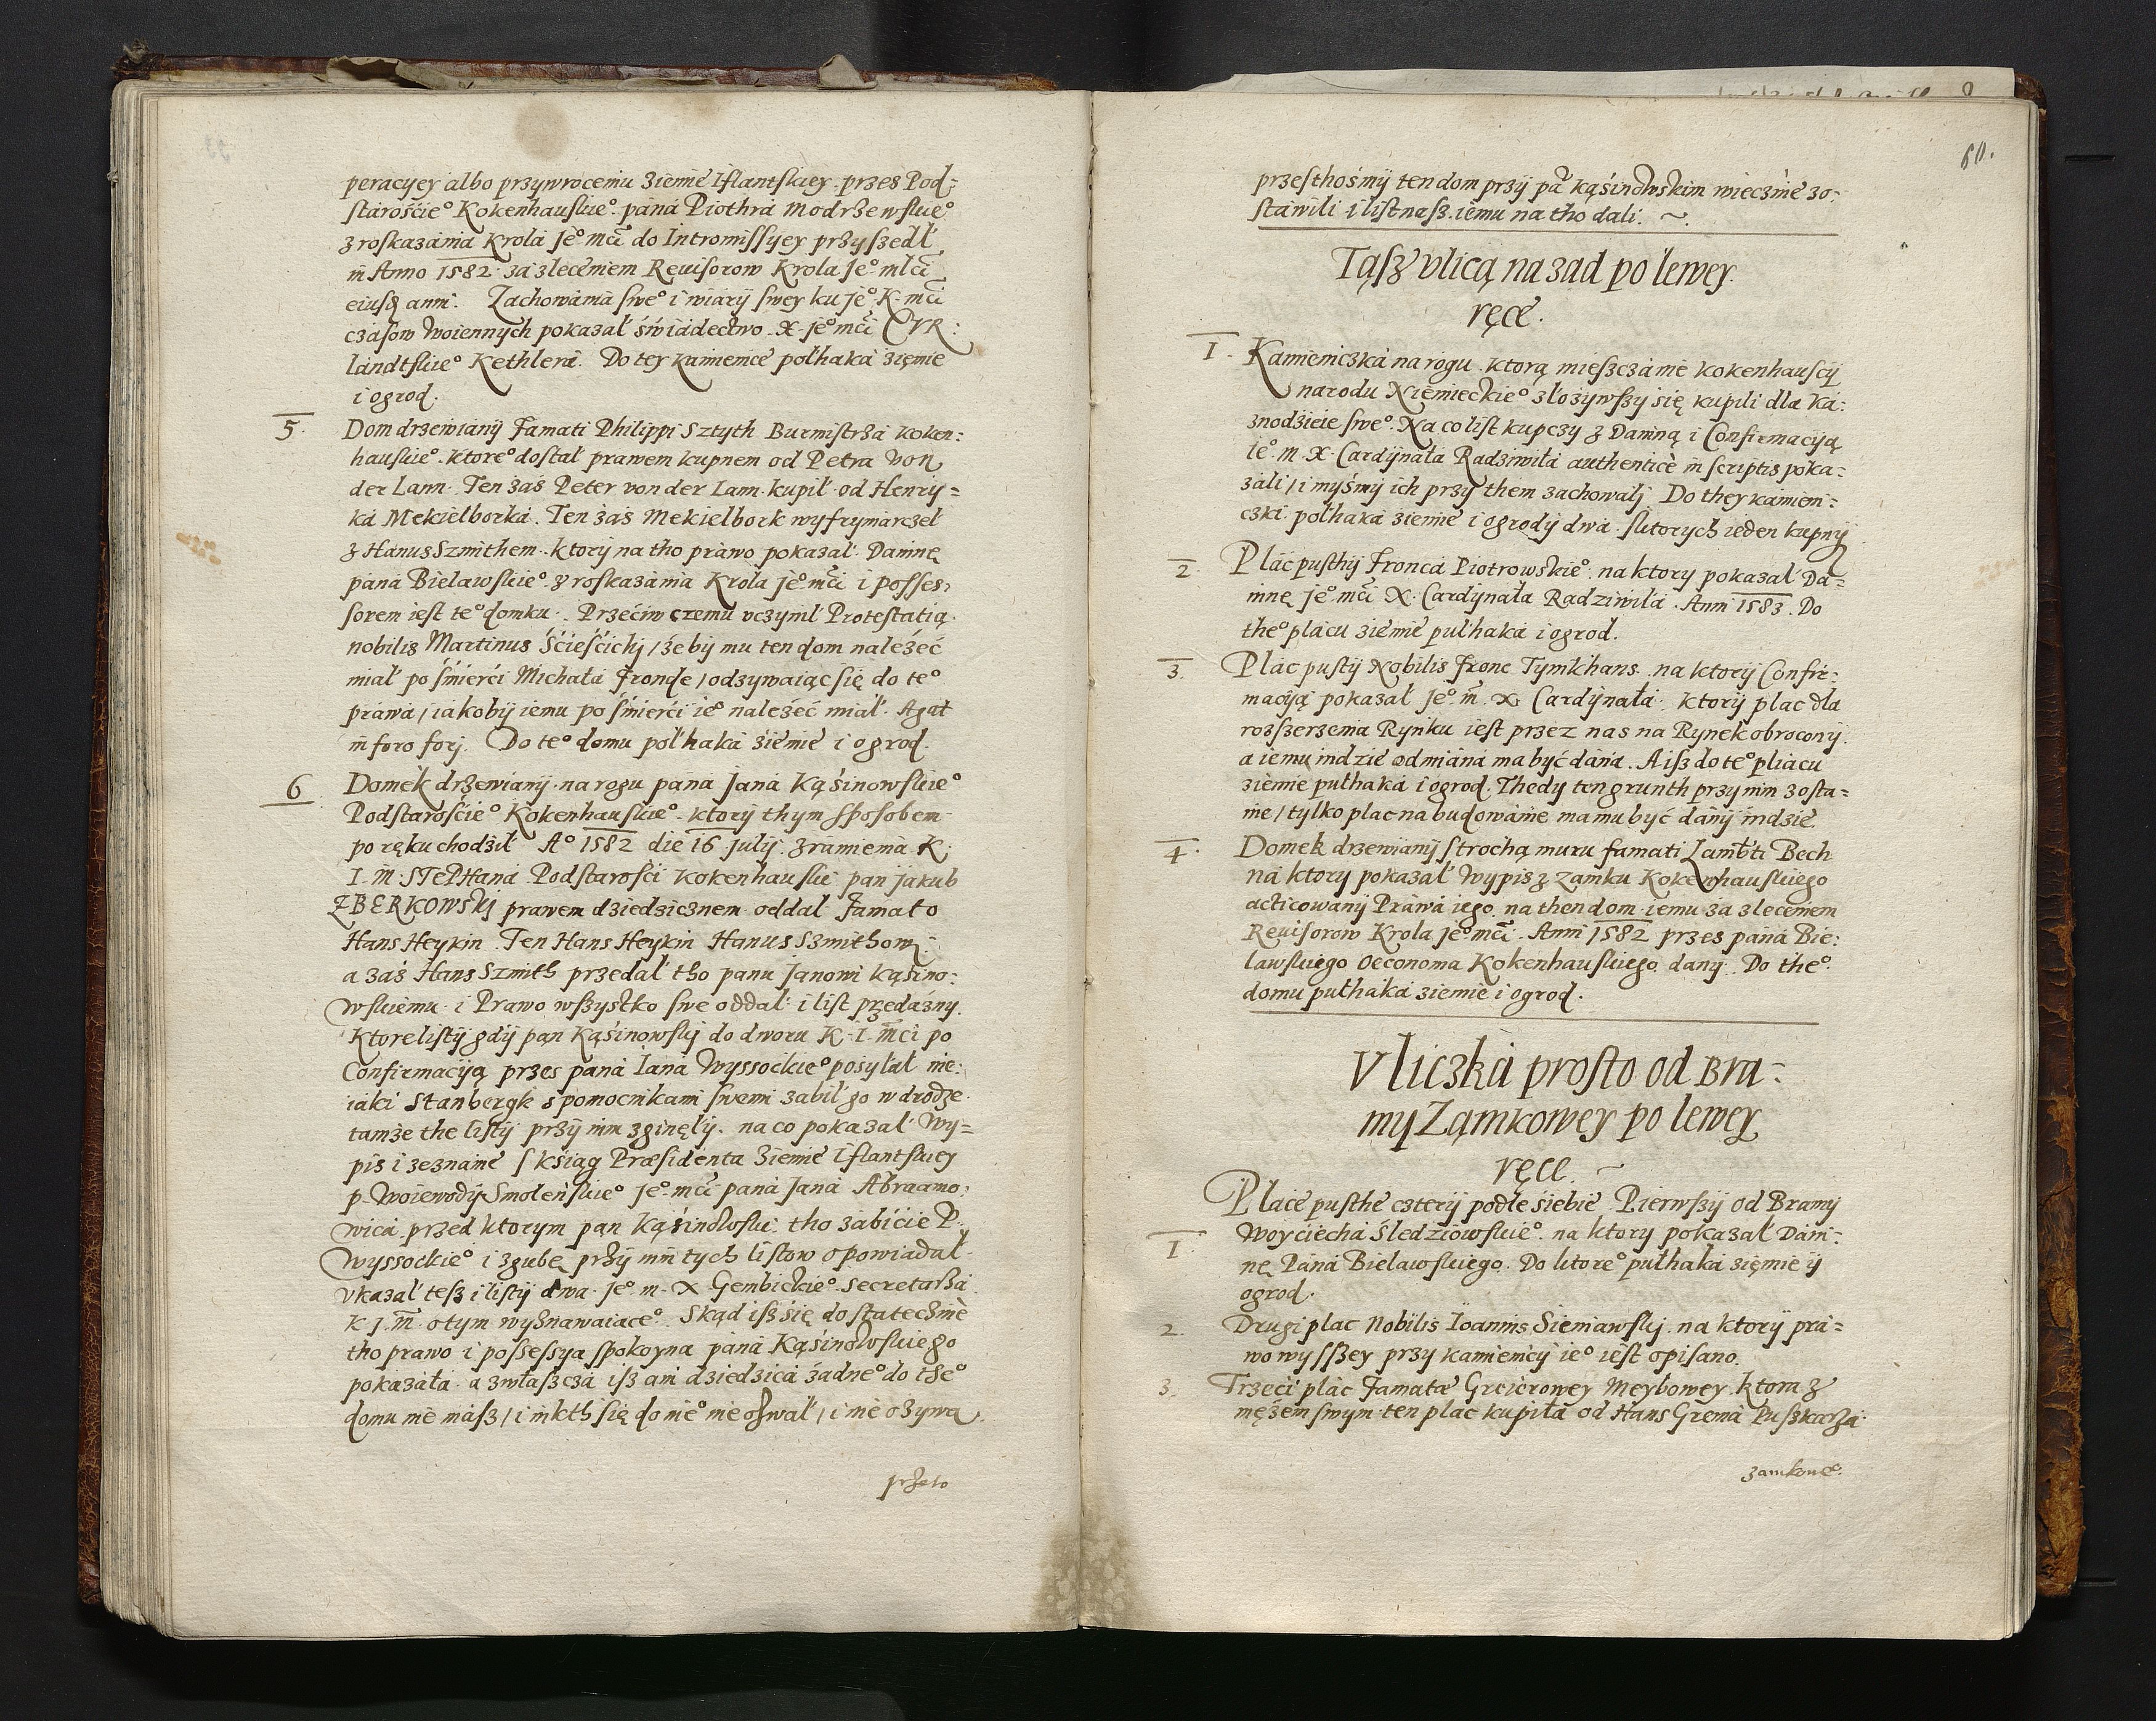 peracyey albo przywroceniu ziemie Iflantskiey. przes Pod=
starośćieº Kokenhauskieº. páná Piothrá Modrzewskieº
z roskazániá Krolá Jeº mći do Intromissyey przyszedł
in Anno 1582 zá zleceniem Reuisorow Krola Jeº młći
eiusd anni. Zachowániá sweº i wiáry swey ku jeº K. mći
czásow woiennych pokazał świádectwo X. jeº mći CVR:
lándtskieº Kethlerá. Do tey kamienice połhaká ziemie
i ogrod.
5. Dom drzewiány Famati Philippi Sztyth Burmistrzá koken:
hauskieº. ktoreº dostał prawem kupnem od Petra von
der Lann. Ten záś Peter von der Lann kupił od Henry=
ká Mekielborká. Ten záś Mekielbork wyfrymárczeł
z Hánus Szmithem. ktory na tho práwo pokazał Dáninę
páná Bielawskieº. z roskazánia Krolá jeº mći i posses,
sorem iest teº domku. Przećiw czemu vczynił Protestatią
nobilis Martinus Śćieśćichi, żeby mu ten dom należeć
miał po śmierći Michałá Fronde, odzywaiąc się do teº
práwá, iákoby iemu po śmierći ieº należeć miał. Agat
in foro forj. Do teº domu połhaká ziemie i ogrod.
6 Domek drzewiány na rogu páná Janá Kąśinowskieº
Podstárośćieº Kokenhauskieº. ktory thym sposobem
po ręku chodził Aº 1582 die 16 Julij. z ramieniá K.
I. M. STEPHaná Podstarosći kokenhauski pan jakub
ZBERKOWSKI prawem dziedzicznem oddał Famato
Hans Heykin. Ten Hans Heykin Hanus Szmithowi
a záś Hans Szmith przedał tho panu Janowi Kąśino:
wskiemu i Prawo wszystko swe oddał i list przedáżny.
Ktore listy gdy pąn Kąśinowskj do dworu K. I. mći po
Confirmacyą przes páná Iáná Wyssockieº posyłał nie:
iáki Stanbergk s pomocnikami swemi zábił go w drodze.
tamże the listy przy nim zginęły. na co pokazał Wy=
pis i zeznánie s kśiąg Præsidentá ziemie Iflantskiey
p. Woiewody Smoleńskieº jeº mći páná Janá Abraamo:
wicá przed ktorym pan Kąśinowski tho zábićie P.
Wyssockieº i zgubę przy nim tych listow opowiadał
vkazał tesz i listy dwa jeº m. X Gembickieº Secretarzá
K J. M. o tym wyznawaiąceº. Skąd isz się dostatecznie
tho prawo i possessya spokoyna páná Kąśinowskiego
pokazáłá. a zwłaszczá isz ani dziedzicá żadneº do theº
domu nie mász, i nikth się do nieº nie ozwał, i nie ozywa.
przeto
60.
przesthośmy ten dom przy pá Kąśinowskim wiecznie zo:
stáwili i list nasz iemu na tho dali. ~
Tąsz vlicą nazad po lewey
ręce.
1. Kamieniczká na rogu. ktorą mieszczánie kokenhauscy
narodu Niemieckieº złożywszy się kupili dla Ká:
znodzieie sweº. Na co list kupczy z Dániną i Confirmacyą
ieº m. X. Cardynałá Radziwiłá authenticè in scriptis poka=
záli, i myśmy ich przy them záchowálj. Do they kamieni=
czki połhaká ziemie i ogrody dwá. s ktorych ieden kupny
2. Plác pusthy Froncá Piotrowskieº. na ktory pokazał Dá=
ninę jeº mći X. Cardynałá Radziwiłá. Anni 1583. Do
theº plácu ziemie pułhaká i ogrod.
3. Plác pusty Nobilis Fronc Tymkhans. na ktory Confir=
macyą pokazał jeº. m. X. Cardynałá. ktory plac dla
rozszerzenia Rynku iest przez nas na Rynek obrocony.
a iemu indzie odmiáná ma być dáná. A isz do teº pliacu
ziemie pułhaká i ogrod. Thedy ten grunth przy nim zosta=
nie, tylko plac na budowánie ma mu być dány indzie.
4. Domek drzewiány s trochą muru famati Lamb̃ti Bech
ná ktory pokazał Wypis z Zamku Kokenhauskiego
acticowány Práwá iego. na then dom iemu zá zleceniem
Reuisorow Krola jeº mći. Anni 1582 przes páná Bie:
lawskiego Oeconoma Kokenhauskiego dany. Do theº
domu pułháká ziemie i ogrod.
Vliczká prosto od Bra=
my Ząmkowey po lewey
ręce. ~
Pláce pusthe cztery podle śiebie. Pierwszy od Bramy
1 Woyćiechá Śledziowskieº. na ktory pokazał Dáni=
nę Páná Bielawskiego. Do ktoreº pułhaká ziemie y
ogrod.
2. Drugi plac Nobilis Ioannis Sieniawskj. na ktory prá=
wo wyszszey przy kamienicy ieº iest opisano.
3. Trzeći plác Famatæ Greierowey Meybowey. ktora z
mężem swym ten plac kupiłá od Hans Gremá Puszkarzá
zamkoweº.